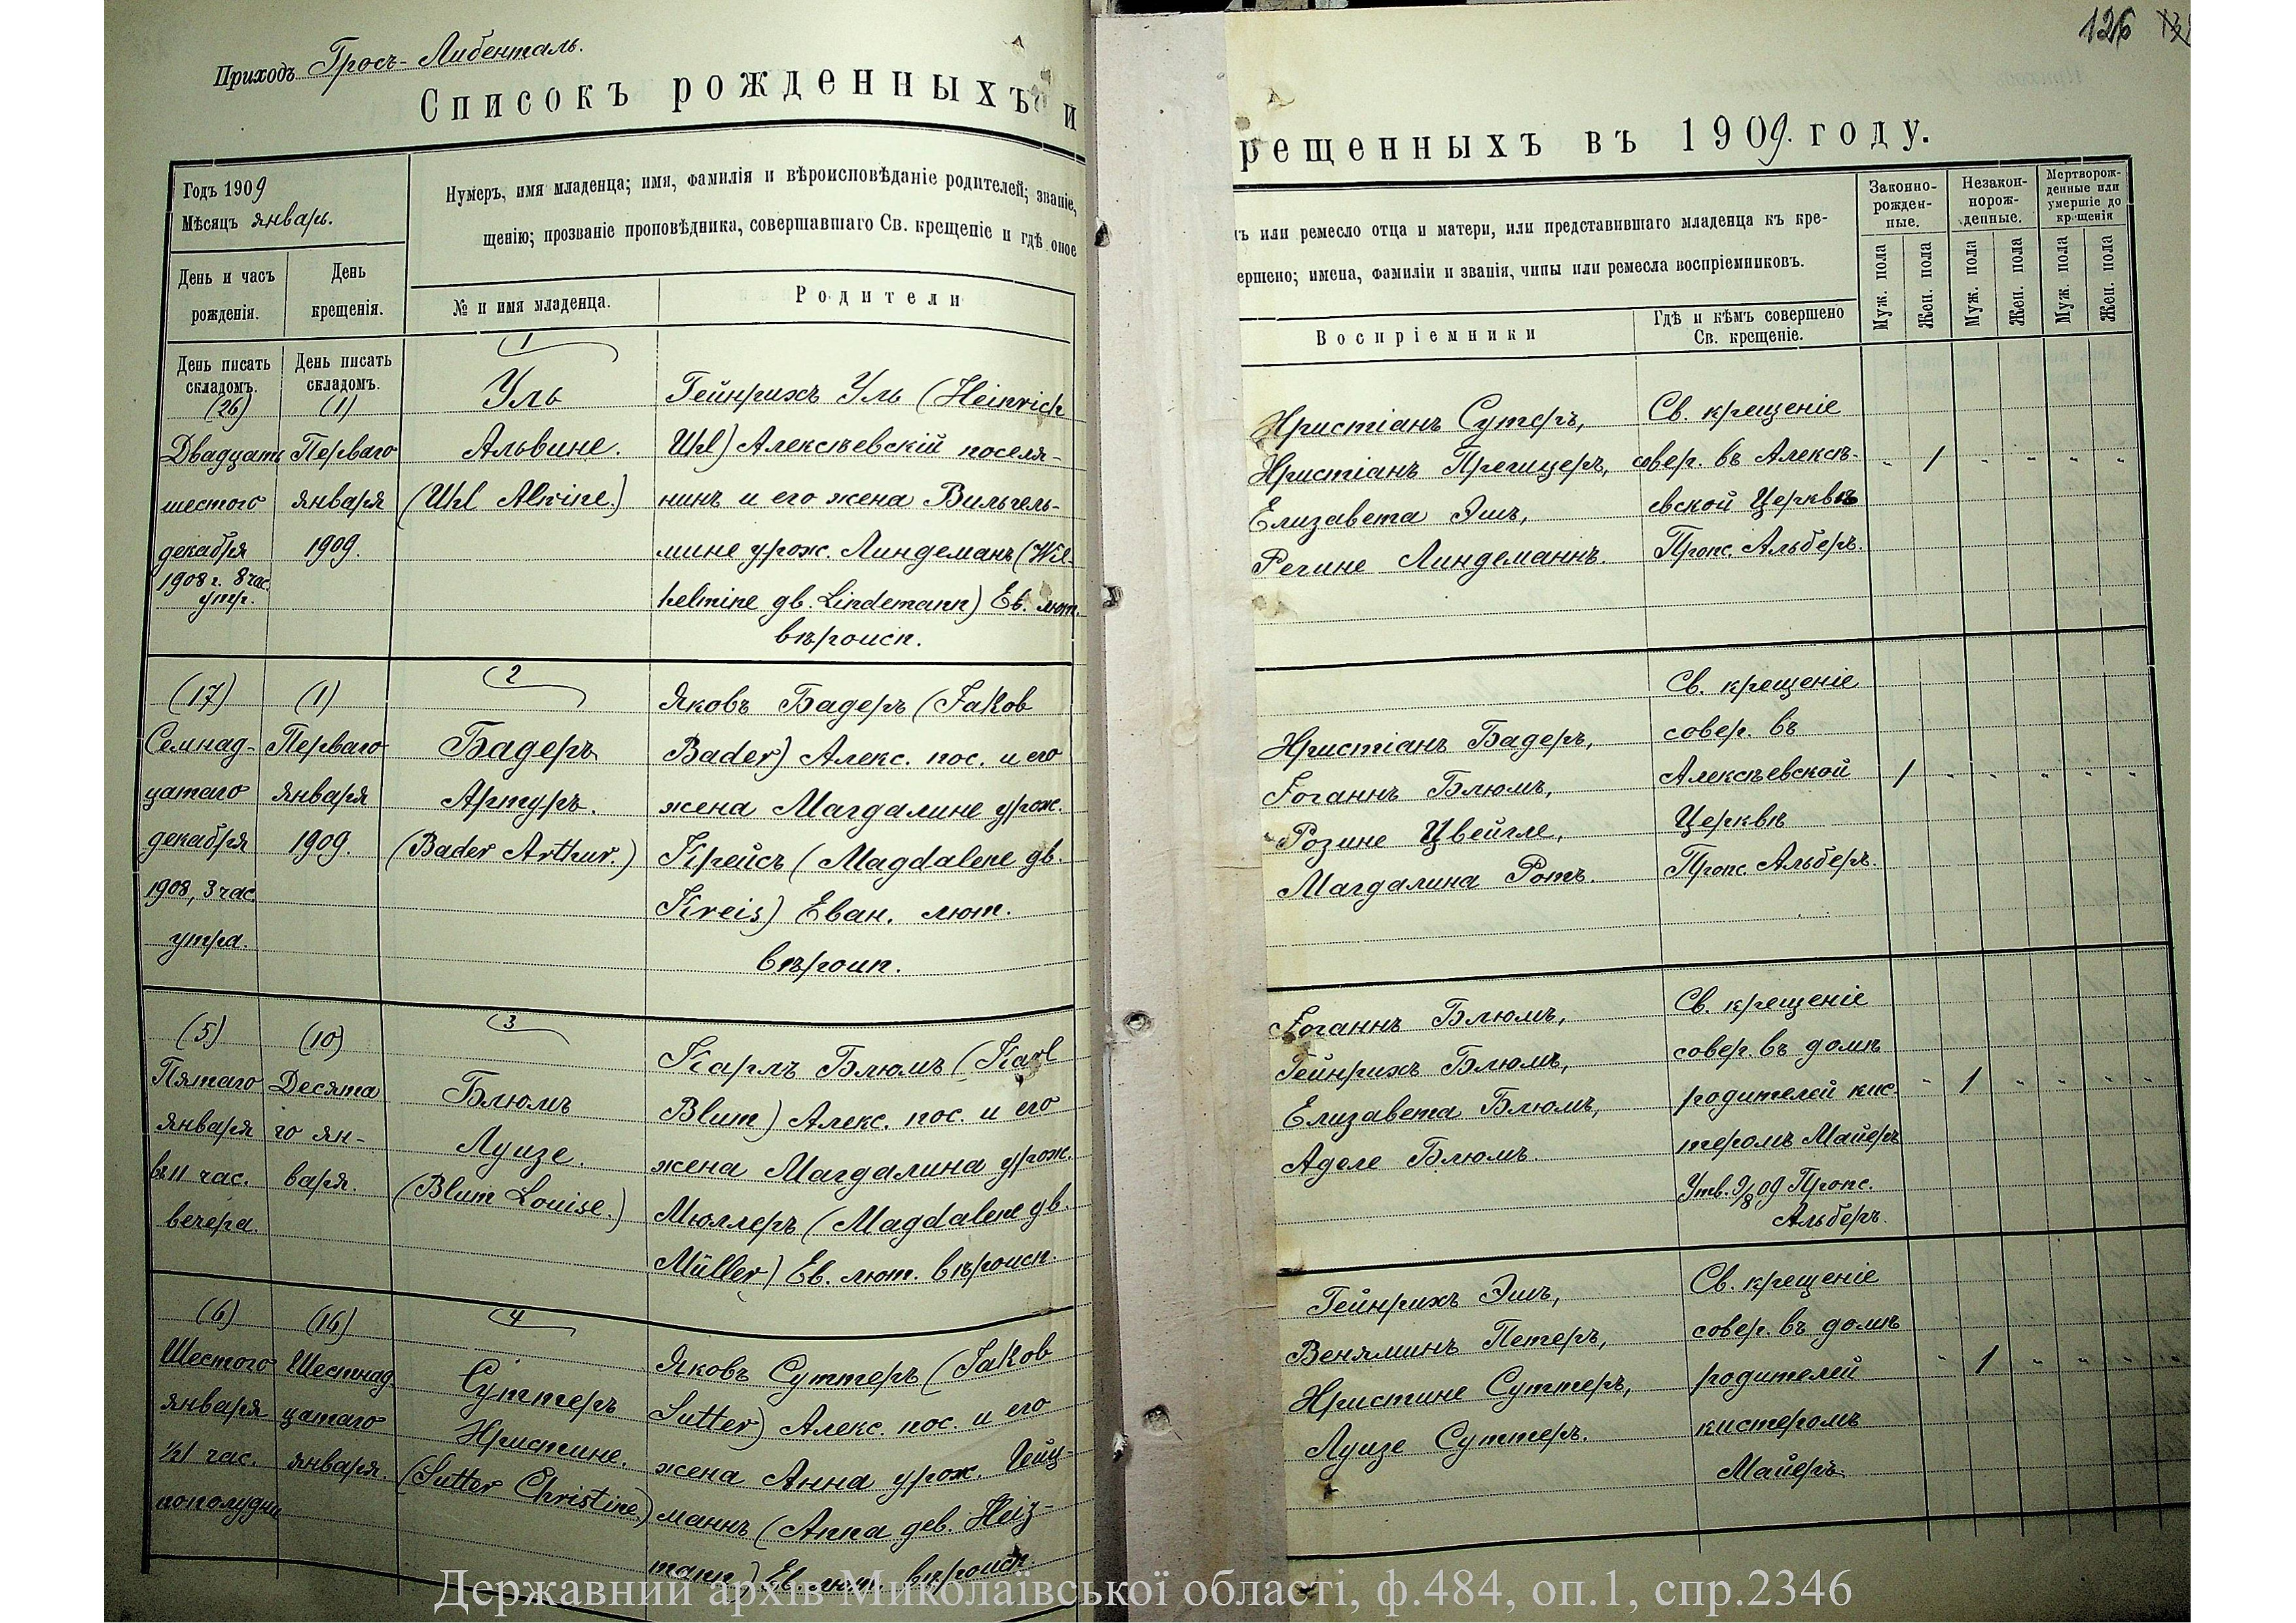 126
Приходъ Гросъ-Либенталь.
Списокъ рожденныхъ и
рещенныхъ въ 1909. году.
Годъ 1909
Мѣсяцъ январь.
Нумеръ, имя младенца; имя, фамилія и вѣроисповѣданіе родителей; званіе,
щенію; прозваніе проповѣдника, совершавшаго Св. крещеніе и гдѣ оное
День и часъ
рожденія.
День
крещенія.
№ и имя младенца.
Родители
День писать
складомъ.
День писать
складомъ.
(26)
Двадцать
шестого
декабря
1908 г. 8 час.
утр.
(1)
Перваго
января
1909.
1
Уль
Альвине.
(Uhl Alwine.)
Гейнрихъ Уль (Heinrich
Uhl) Алексѣевскій поселя-
нинъ и его жена Вильгель-
мине урож. Линдеманъ (Wil-
helmine дв. Lindemann) Ев. лют.
вѣроисп.
(17)
Семнад-
цатаго
декабря
1908, 3 час.
утра.
(1)
Перваго
января
1909.
2
Бадеръ
Артуръ.
(Bader Arthur.)
Яковъ Бадеръ (Jakob
Bader) Алекс. пос. и его
жена Магдалине урож.
Крейсъ (Magdalene дв.
Kreis) Еван. лют.
вѣроип.
(5)
Пятаго
января
въ 11 час.
вечера.
(10)
Десята
го ян-
варя.
3
Блюмъ
Луизе.
(Blum Louise.)
Карлъ Блюмъ (Karl
Blum) Алекс. пос. и его
жена Магдалина урож.
Мюллеръ (Magdalene дв.
Müller) Ев. лют. вѣроисп.
(6)
Шестого
января
½1 час.
пополудни
(16)
Шестнад
цатаго
января.
4
Суттеръ
Христине.
(Sutter Christine.)
Яковъ Суттеръ (Jakob
Sutter) Алекс. пос. и его
жена Анна урож. Гейц-
маннъ (Anna дев. Heiz-
mann) Ев. лют. вѣроисп.
ъ или ремесло отца и матери, или представившаго младенца къ кре-
ершено; имена, фамиліи и званія, чины или ремесла воспріемниковъ.
Воспріемники
Гдѣ и кѣмъ совершено
Св. крещеніе.
Законно-
рожден-
ные.
Незакон-
норож-
денные.
Мертворож-
денные или
умершіе до
крещенія
Муж. пола
Жен. пола
Муж. пола
Жен. пола
Муж. пола
Жен. пола
Христіанъ Сутеръ,
Христіанъ Прегицеръ,
Елизавета Эшъ,
Регине Линдеманнъ.
Св. крещеніе
совер. въ Алексѣ-
евской Церквѣ
Пропс. Альберъ.
" 1 " " " "
Христіанъ Бадеръ,
Іоганнъ Блюмъ,
Розине Цвейгле,
Магдалина Ротъ.
Св. крещеніе
совер. въ
Алексѣевской
Церквѣ
Пропс. Альберъ.
1 " " " " "
Іоганнъ Блюмъ,
Гейнрихъ Блюмъ,
Елизавета Блюмъ,
Аделе Блюмъ.
Св. крещеніе
совер. въ домѣ
родителей кис-
теромъ Майеръ
Утв. 9/8 09 Пропс.
Альберъ.
" 1 " " " "
Гейнрихъ Эшъ,
Веняминъ Петеръ,
Христине Суттеръ,
Луизе Суттеръ.
Св. крещеніе
совер. въ домѣ
родителей
кистеромъ
Майеръ.
" 1 " " " "
Державний архів Миколаївської області, ф.484, оп.1, спр.2346